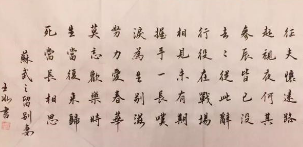 征夫懷遠路
起視夜何其
參辰皆已沒
去去從此辭
行役在戰場
相見未有期
握手一長嘆
淚為生別滋
努力愛春華
莫忘歡樂時
生當復來歸
死當長相思
蘇武之留別妻
書